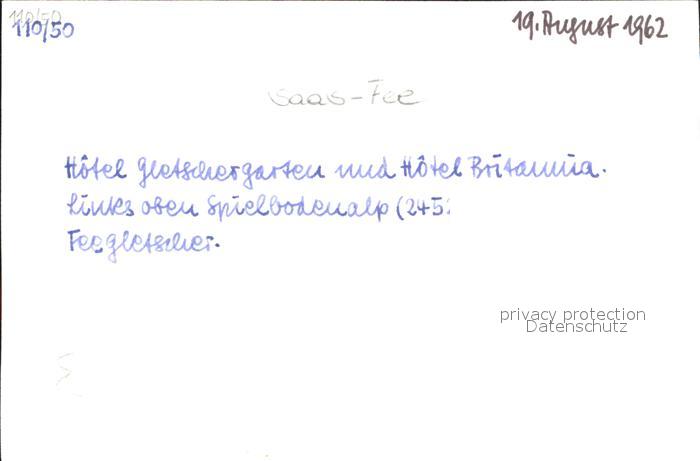 110/50
110/50
19. August 1962
Saas-Fee
Hôtel Gletschergarten und Hôtel Britannia.
Links oben Spielbodenalp (245
Feegletscher.
privacy protection
Datenschutz